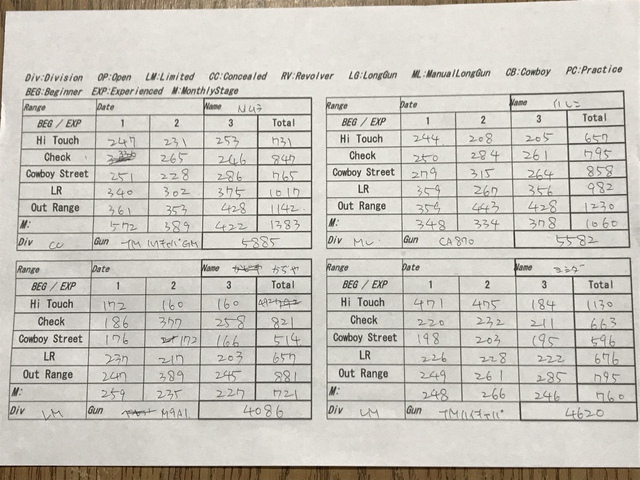 Div:Division OP:Open LM:Limited CC:Concealed RV:Revolver LG:LongGun ML:ManualLongGun CB:Cowboy PC:Practice
BEG:Beginner EXP:Experienced M:MonthlyStage
Range Date Name
BEG / EXP 1 2 3 Total
Hi Touch 247 231 253 731
Check 265 246 847
Cowboy Street 251 228 286 765
LR 340 302 375 1017
Out Range 361 353 428 1142
M: 572 389 422 1383
Div CC Gun TM 5885
Range Date Name
BEG / EXP 1 2 3 Total
Hi Touch 244 208 205 657
Check 250 284 261 795
Cowboy Street 279 315 264 858
LR 359 267 356 982
Out Range 359 443 428 1230
M: 348 334 378 1060
Div ML Gun CA870 5582
Range Date Name
BEG / EXP 1 2 3 Total
Hi Touch 172 160 160
Check 186 377 258 821
Cowboy Street 176 172 166 514
LR 237 217 203 657
Out Range 247 389 245 881
M: 259 235 227 721
Div LM Gun M9A1 4086
Range Date Name
BEG / EXP 1 2 3 Total
Hi Touch 471 475 184 1130
Check 220 232 211 663
Cowboy Street 198 203 195 596
LR 226 228 222 676
Out Range 249 261 285 795
M: 248 266 246 760
Div LM Gun TMハイキャパ 4620